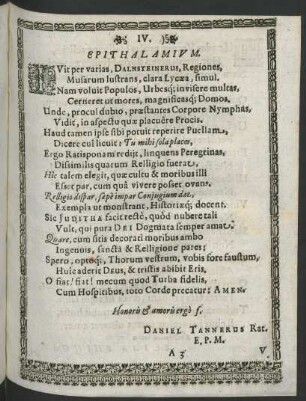 IV.
EPITHALAMIVM.
IVit per varias, DALNSTEINERUS, Regiones,
Musarum lustrans, clara Lycæa, simul.
Nam voluit Populos, Urbesq; invisere multas,
Cerneret ut mores, magnificasq; Domos,
Unde, procul dubio, præstantes Corpore Nymphas,
Vidit, in aspectu quæ placuêre Procis.
Haud tamen ipse sibi potuit reperire Puellam,
Dicere cui licuit: Tu mihi sola places,
Ergo Ratisponam redijt, linquens Peregrinas,
Dissimilis quarum Relligio fuerat,
Hîc talem elegit, quæ cultu & moribus illi
Esset par, cum quâ vivere posset ovans.
Relligio dispar, sæpè impar Conjugium dat,
Exempla ut monstrant, Historiæq; docent.
Sic JUDITHA facit rectè, quòd nubere tali
Vult, qui pura DEI Dogmata semper amat.
Quare, cum sitis decorati moribus ambo
Ingenuis, sanctâ & Relligione pares;
Spero, optoq;, Thorum vestrum, vobis fore faustum,
Huic aderit Deus, & tristis abibit Eris,
O fiat! fiat! mecum quod Turba fidelis,
Cum Hospitibus, toto Corde precatur: AMEN.
Honoris & amoris ergò f.
DANIEL TANNERUS Rat.
E. P. M.
A 3 V.